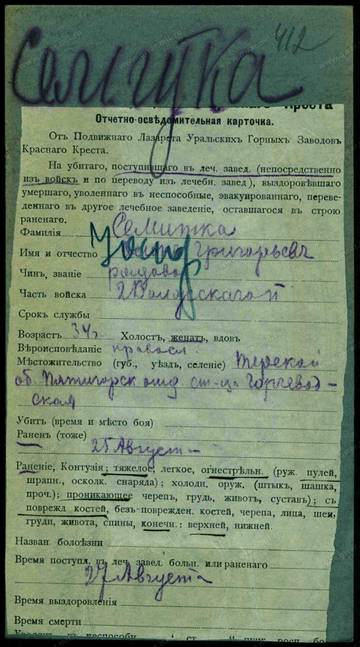 Семутка
412
Креста
Отчетно-осведомительная карточка.
Отъ Подвижнаго Лазарета Уральскихъ Горныхъ Заводовъ
Краснаго Креста.
На убитаго, поступившаго въ леч. завед. (непосредственно
изъ войскъ и по переводу изъ лечебн. завед.), выздоровѣвшаго
умершаго, уволеннаго въ неспособные, эвакуированнаго, переве-
деннаго въ другое лечебное заведеніе, оставшагося въ строю
раненаго.
Фамилія Семутка
Имя и отчество Григорьевъ
Чинъ, званіе рядово
Часть войска 2
Срокъ службы
Возрастъ 34 г. Холостъ, женатъ, вдовъ
Вѣроисповѣданіе правосл.
Мѣстожительство (губ., уѣздъ, селеніе) Терской
об. Пятигорск отд ст-ца
ская
Убитъ (время и мѣсто боя)
Раненъ (тоже) 25 Августа
Раненіе, Контузія; тяжелое, легкое, огнестрѣльн. (руж. пулей,
шрапн., осколк. снаряда); холодн. оруж. (штыкъ, шашка,
проч.); проникающее черепъ, грудь, животъ, суставъ); съ
поврежд. костей, безъ поврежден. костей, черепа, лица, шеи,
груди, живота, спины, конечн.: верхней, нижней.
Назван. болѣзни
Время поступл. въ леч. завед. больн. или раненаго
27 Августа
Время выздоровленія
Время смерти